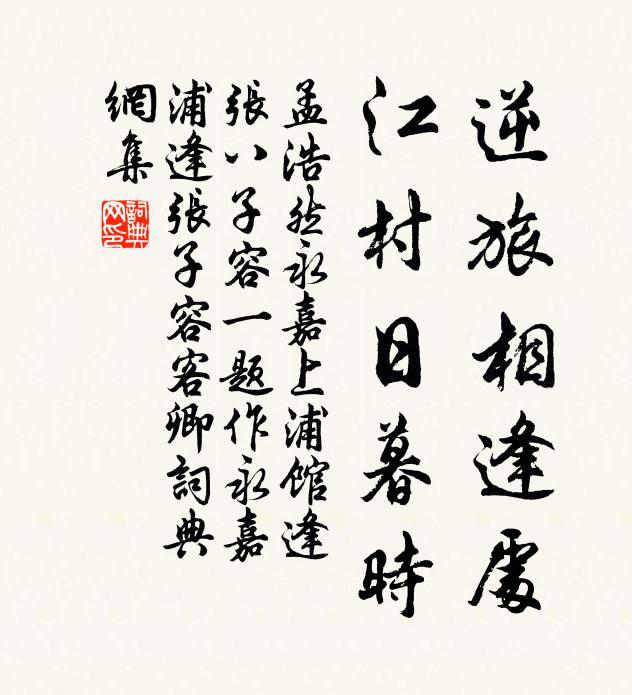 逆旅相逢處
江村日暮時
孟浩然永嘉上浦館逢
張八子容一題作永嘉
浦逢張子容客卿詞典
網集
詞典
网印